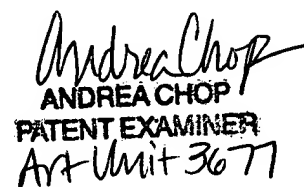 Andrea Chop
ANDREA CHOP
PATENT EXAMINER
Art Unit 3677